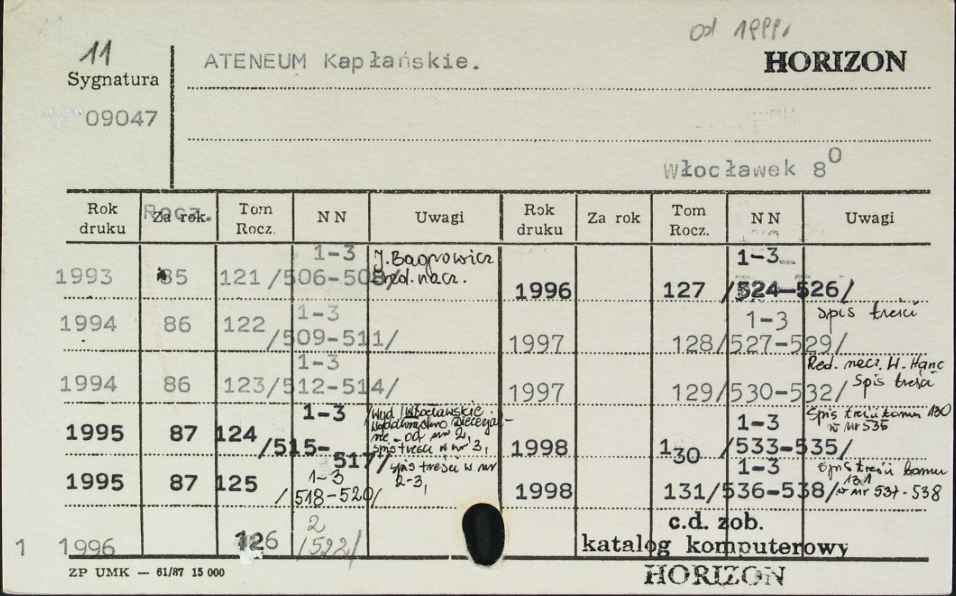 od 1999.
11
ATENEUM Kapłańskie.
HORIZON
Sygnatura
09047
Włocławek 8⁰
Rok druku Rocz. Za rok Tom Rocz. NN Uwagi Rok druku Za rok Tom Rocz. NN Uwagi
1993 85 121 1-3 /506-508/ J. Bagrowicz red. nacz.
1994 86 122 1-3 /509-511/
1994 86 123 1-3 /512-514/
1995 87 124 1-3 /515-517/ Wyd. Włocławskie Wydawnictwo Diecezjalne - od nr 2, spis treści w nr 3,
1995 87 125 1-3 /518-520/ spis treści w nr 2-3,
1 1996 126 2 /522/
1996 127 1-3 /524-526/
1997 128 1-3 /527-529/ spis treści
1997 129 /530-532/ Red. nacz. W. Hanc Spis treści
1998 130 1-3 /533-535/ Spis treści tomu 130 w nr 535
1998 131 1-3 /536-538/ Spis treści tomu 131 w nr 537-538
c.d. zob.
katalog komputerowy
HORIZON
ZP UMK — 61/87 15 000